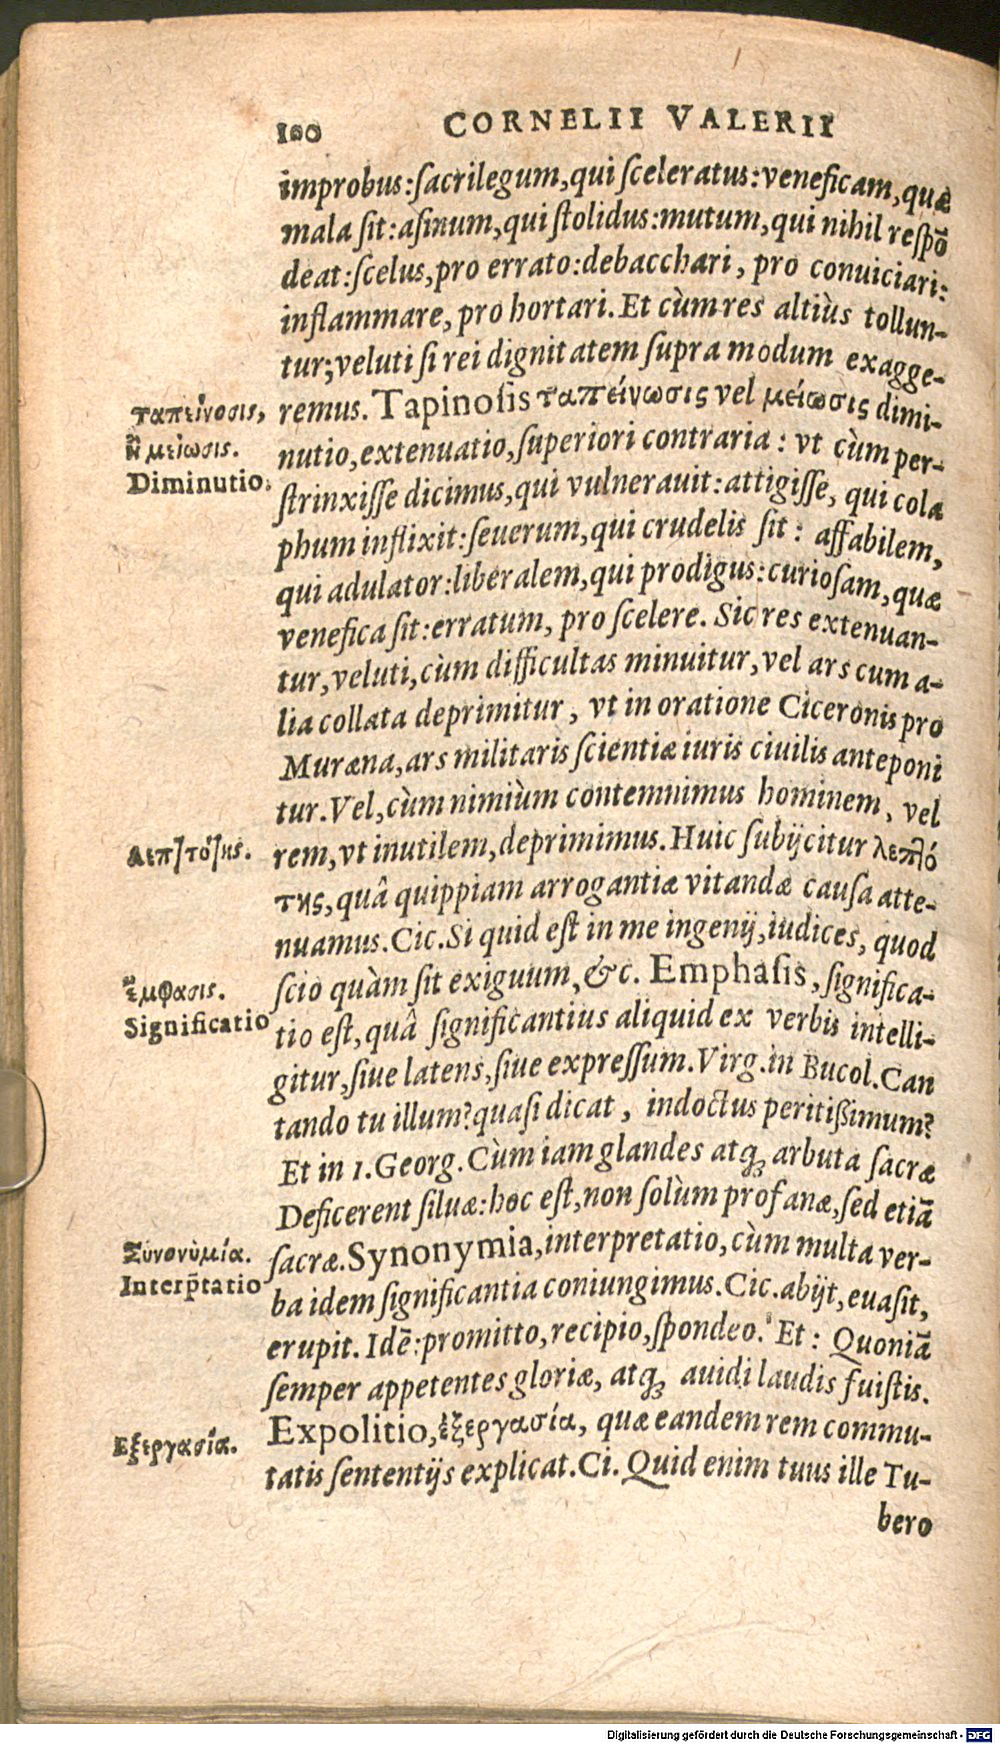 100 CORNELII VALERII
improbus:ſacrilegum,qui ſceleratus:veneficam,quæ
mala ſit:aſinum,qui ſtolidus:mutum,qui nihil reſpõ
deat:ſcelus,pro errato:debacchari, pro conuiciari:
inflammare, pro hortari. Et cùm res altiùs tollun-
tur;veluti ſi rei dignitatem ſupra modum exagge-
remus. Tapinoſis ταπείνωσις vel μείωσις dimi-
nutio,extenuatio,ſuperiori contraria: vt cùm per-
ſtrinxiſſe dicimus,qui vulnerauit:attigiſſe, qui cola
phum inflixit:ſeuerum,qui crudelis ſit: affabilem,
qui adulator:liberalem,qui prodigus:curioſam,quæ
venefica ſit:erratum, pro ſcelere. Sic res extenuan-
tur,veluti,cùm difficultas minuitur,vel ars cum a-
lia collata deprimitur, vt in oratione Ciceronis pro
Muræna,ars militaris ſcientiæ iuris ciuilis anteponi
tur.Vel,cùm nimiùm contemnimus hominem, vel
rem,vt inutilem,deprimimus.Huic ſubijcitur λεπτό
της,quâ quippiam arrogantiæ vitandæ cauſa atte-
nuamus.Cic.Si quid eſt in me ingenij,iudices, quod
ſcio quàm ſit exiguum,&c. Emphaſis, ſignifica-
tio eſt,quâ ſignificantius aliquid ex verbis intelli-
gitur,ſiue latens,ſiue expreſſum.Virg.in Bucol.Can
tando tu illum?quaſi dicat, indoctus peritißimum?
Et in 1.Georg.Cùm iam glandes atq; arbuta ſacræ
Deficerent ſiluæ:hoc eſt,non ſolùm profanæ,ſed etiã
ſacræ.Synonymia,interpretatio,cùm multa ver-
ba idem ſignificantia coniungimus.Cic.abijt,euaſit,
erupit. Idẽ:promitto,recipio,ſpondeo. Et: Quoniã
ſemper appetentes gloriæ, atq; auidi laudis fuiſtis.
Expolitio,ἐξεργασία, quæ eandem rem commu-
tatis ſententijs explicat.Ci. Quid enim tuus ille Tu-
bero
ταπείνοσις,
ἢ μείωσις.
Diminutio.
Λεπτότης.
ἔμφασις.
Significatio
Συνονυμία.
Interp̃tatio
Εξεργασία.
Digitalisierung gefördert durch die Deutsche Forschungsgemeinschaft - DFG